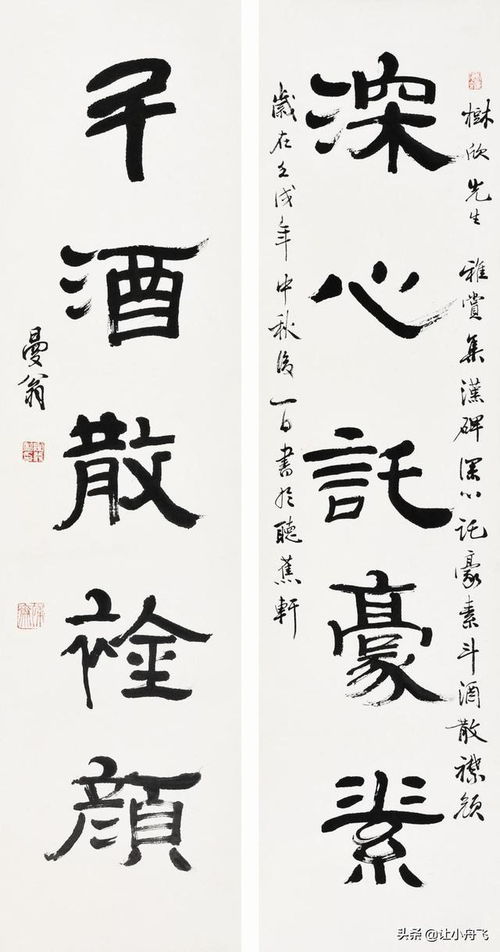 樹欣先生 雅賞集漢碑深心託豪素斗酒散襟顏
深心託豪素
歲在壬戌年中秋後一日書於聽蕉軒
斗酒散䘳顏
曼翁
头条 @让小舟飞